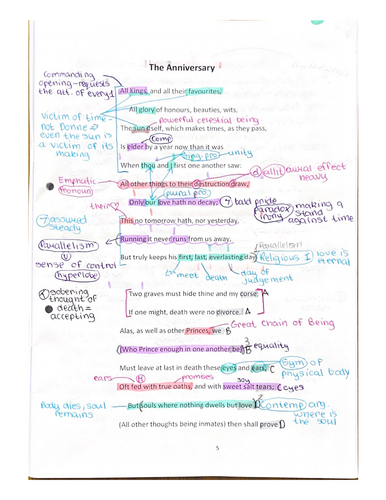 The Anniversary
Commanding
opening-requests
the att. of every1
All kings, and all their favourites,
All glory of honours, beauties, wits,
Victim of time
not Donne →
even the sun is
a victim of its
making
powerful celestial being
The sun itself, which makes times, as they pass,
comp
Is elder by a year now than it was
sing pro
unity
When thou and I first one another saw:
allit
aural effect
heavy
Emphatic
pronoun
All other things to their destruction draw,
plural pro
their
Only our love hath no decay;
bald pride
Paradox
irony
making a
stand
against time
assured
steady
This no tomorrow hath, nor yesterday,
Running it never runs from us away,
Parallelism
sense of control
hyperbole
Parallelism
But truly keeps his first, last, everlasting day.
Religious I
love is
eternal
meet
death
day of
judgement
sobering
thought of
death =
accepting
Two graves must hide thine and my corse; A
If one might, death were no divorce. A
Great Chain of Being
Alas, as well as other Princes, we B
(Who Prince enough in one another be) B
equality
Must leave at last in death these eyes and ears, C
Sym of
physical body
ears
promises
joy
Oft fed with true oaths, and with sweet salt tears; C
eyes
Body dies, soul
remains
But souls where nothing dwells but love D
Contemp arg.
where is
the soul
(All other thoughts being inmates) then shall prove D
5